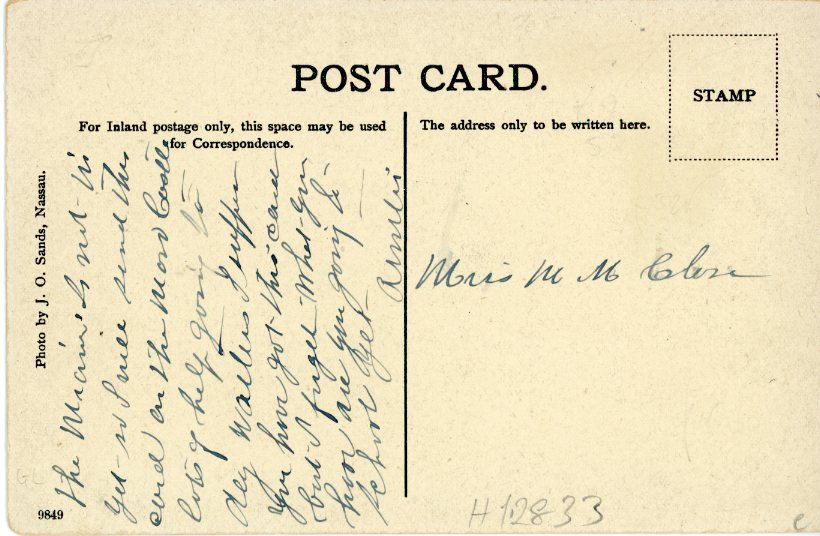 POST CARD.
STAMP
For Inland postage only, this space may be used
for Correspondence.
The address only to be written here.
Photo by J. O. Sands, Nassau.
The Miami is not in
yet so I will send this
card on the Morro Castle
lots of help going to
day Walters I suppose
you have got this card
but I forget what you
have are you going to
school yet
Miss M M Close
H12833
9849
GL
e